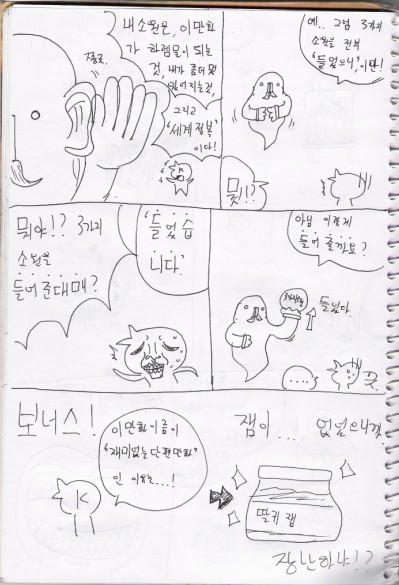 내 소원은, 이 만화
가 하렘물이 되는
것, 내가 좀더 멋
있어지는것,
그리고
'세계정복'
이다!
쫑긋
예.. 그럼 3가지
소원을 전부
'들었으니', 이만!
뭣!!?
뭐야!? 3가지
소원을
들어준대매?
'들었습
니다.'
아님 이렇게
들어 줄까요?
3가지소원
들었다.
....
굿
보너스!
이만화이름이
"재미없는단편만화"
인 이유는...!
K
잼이... 없었으니까
딸기 잼
장난하냐!?